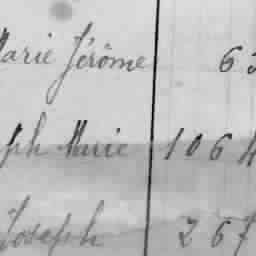 Marie Jérôme 63
ph Marie 1064
Joseph 267